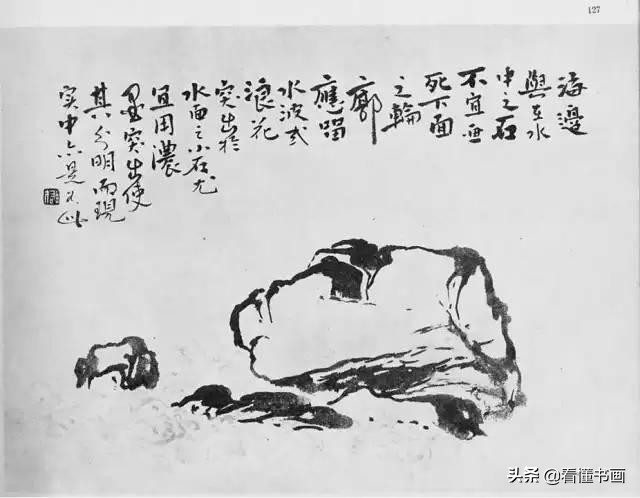 127
海邊
與在水
中之石
不宜画
死下面
之輪
廓
應留
水波或
浪花
突出於
水面之小石尤
宜用濃
墨突出使
其分明而現
实中亦是如此
头条 @看懂书画